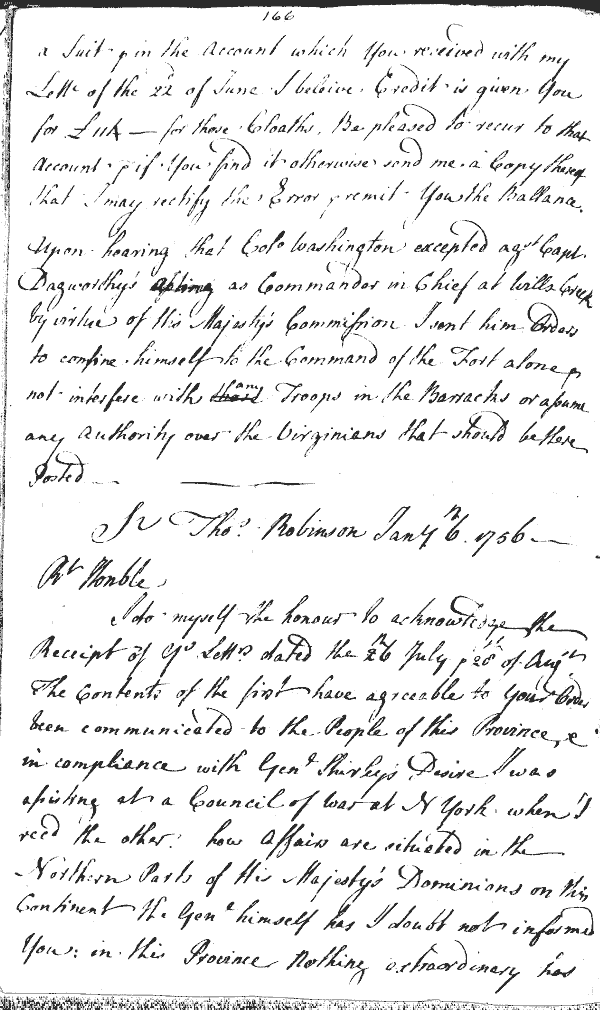 166
a Suit & in the Account which You received with my
Lettr of the 22d of June I beleive Credit is given You
for £ — for those Cloaths, Be pleased to recur to that
Account & if You find it otherwise send me a Copy thereof
that I may rectify the Error & remit You the Ballance.
Upon hearing that Colo Washington excepted agst Capt.
Dagworthy's acting as Commander in Chief at Wills Creek
by virtue of His Majesty's Commission I sent him Orders
to confine himself to the Command of the Fort alone &
not interfere with any Troops in the Barracks or assume
any Authority over the Virginians that should be there
Posted —
Sr Thos. Robinson Janry 6. 1756 —
Rt Honble
I do myself the honour to acknowledge the
Receipt of Yr Letters dated the 26th July & 28th of Augst
The Contents of the first have agreeable to Your Order
been communicated to the People of this Province, &
in compliance with Genl Shirley's Desire I was
assisting at a Council of War at N York when I
recd the other: how Affairs are situated in the
Northern Parts of His Majesty's Dominions on this
Continent the Genl himself has I doubt not informed
You: in this Province Nothing extraordinary has